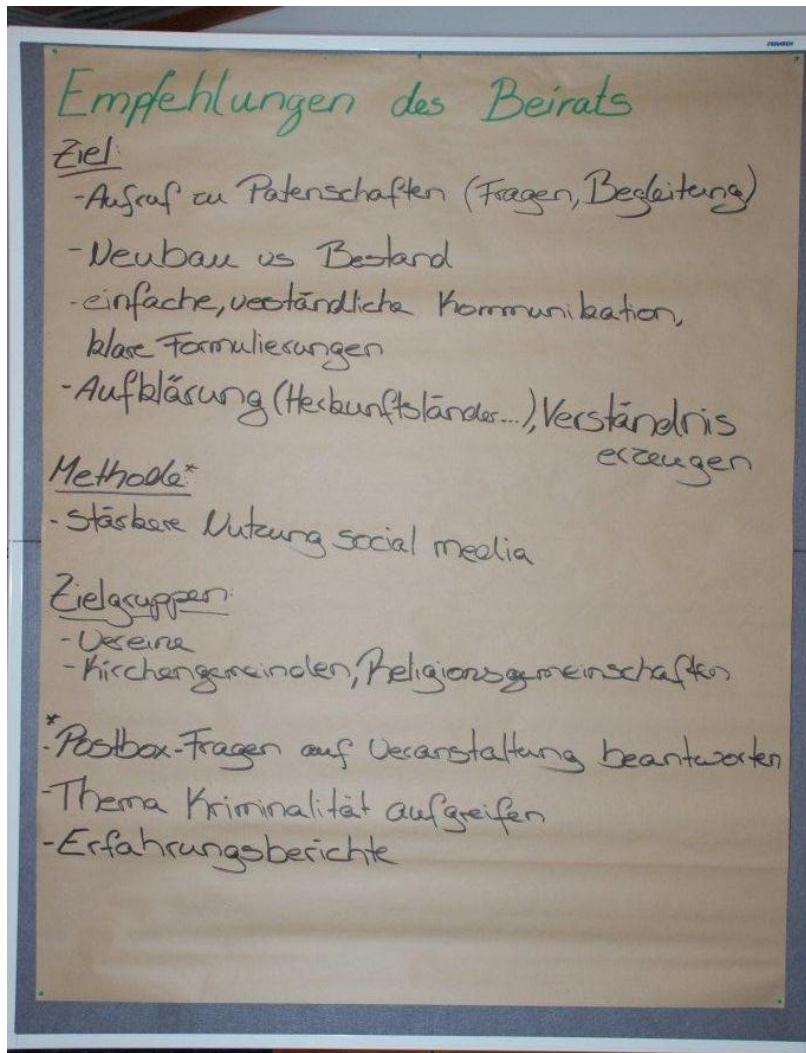 FRANKEN
Empfehlungen des Beirats
Ziel:
- Aufruf zu Patenschaften (Fragen, Begleitung)
- Neubau vs Bestand
- einfache, verständliche Kommunikation,
klare Formulierungen
- Aufklärung (Herkunftsländer...), Verständnis
erzeugen
Methode*
- Stärkere Nutzung social media
Zielgruppen:
- Vereine
- Kirchengemeinden, Religionsgemeinschaften
*
- Postbox-Fragen auf Veranstaltung beantworten
- Thema Kriminalität aufgreifen
- Erfahrungsberichte